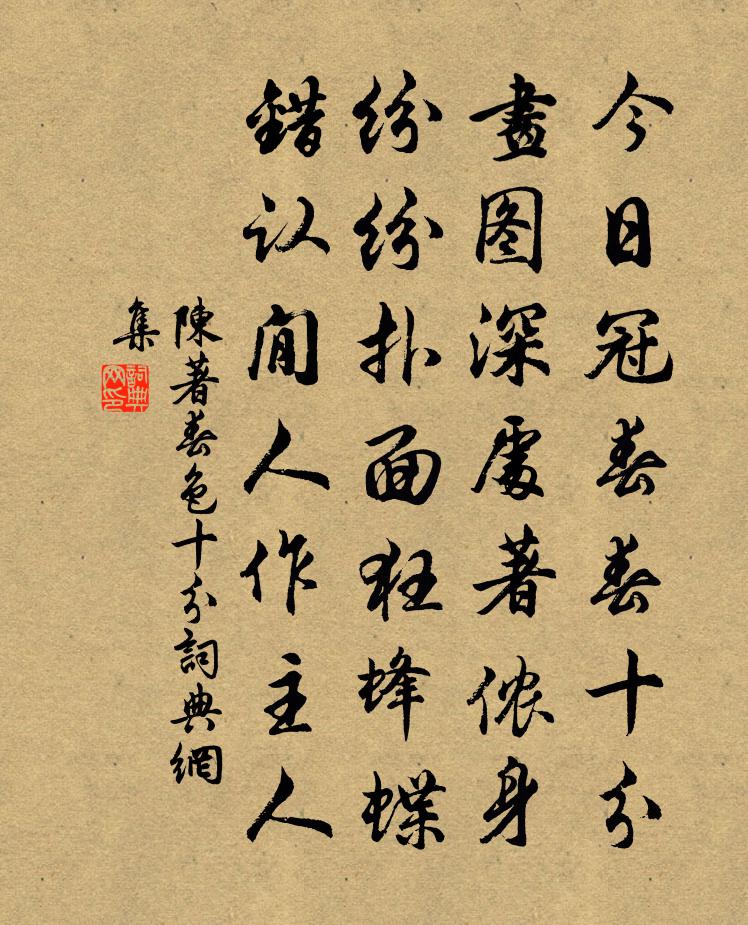 今日冠春春十分
畫图深處著侬身
纷纷扑面狂蜂蝶
錯认閒人作主人
陳著春色十分詞典網
集
詞典
网印